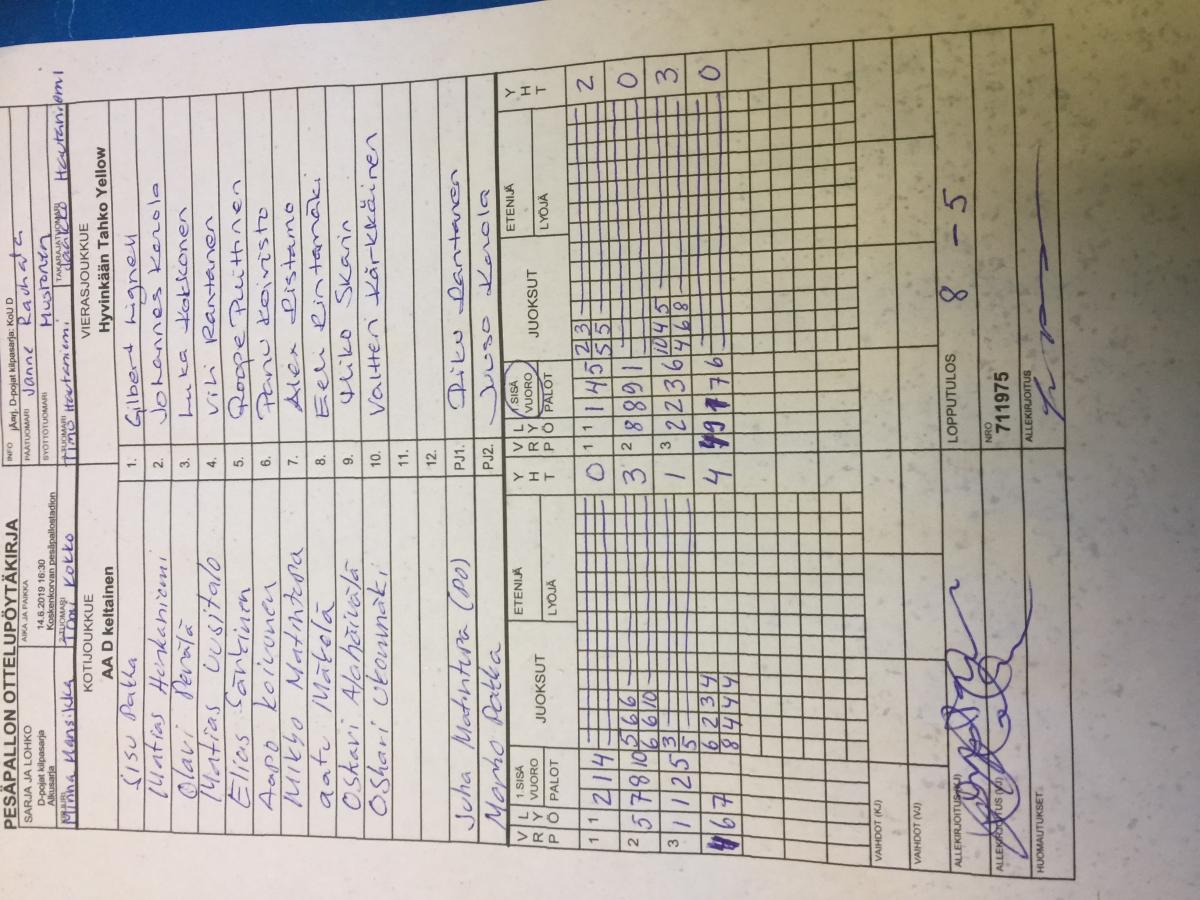 PESÄPALLON OTTELUPÖYTÄKIRJA
INFO jÄmj. D-pojat kilpasarja: KoU D
SARJA JA LOHKO
D-pojat kilpasarja
Alkusarja
AIKA JA PAIKKA
14.6.2019 16:30
Koskenkorvan pesäpallostadion
PÄÄTUOMARI Janne Rauhala
SYÖTTÖTUOMARI Mustonen
Minna Mansikka
2-TUOMARI Tomi Kokko
Timo Hautaniemi
TAKARAJATUOMARI Jaakko Hautaniemi
KOTIJOUKKUE
AA D keltainen
VIERASJOUKKUE
Hyvinkään Tahko Yellow
Sisu Patka 1. Gilbert Lignell
Matias Henkaniemi 2. Johannes Kerola
Olavi Perälä 3. Luka Kokkonen
Matias Uusitalo 4. Vili Rantanen
Elias Särkinen 5. Roope Puittinen
Aapo Koivunen 6. Panu Koivisto
Mikko Matintupa 7. Alex Ristamo
Aatu Mäkelä 8. Eelu Rintamäki
Oskari Alapäivälä 9. Miko Skarin
Oskari Ukonmäki 10. Valtteri Kärkkäinen
11.
12.
Juha Matintupa (PO) PJ1. Riku Rantanen
Marko Patka PJ2. Juuso Kanala
V R P L Y Ö 1.SISÄ VUORO PALOT JUOKSUT ETENIJÄ LYÖJÄ Y H T V R P L Y Ö 1.SISÄ VUORO PALOT JUOKSUT ETENIJÄ LYÖJÄ Y H T
1 1 2 1 4 0 1 1 1 4 5 2 3 5 5 2
2 5 7 8 10 5 6 6 6 6 10 3 2 8 8 9 1 0
3 1 1 2 5 3 5 1 3 2 2 3 6 10 4 5 4 6 8 3
4 6 7 6 2 3 4 8 4 4 4 4 7 6 0
VAIHDOT (KJ)
VAIHDOT (VJ)
ALLEKIRJOITUS (KJ)
LOPPUTULOS 8 - 5
ALLEKIRJOITUS (VJ)
NRO
711975
HUOMAUTUKSET:
ALLEKIRJOITUS